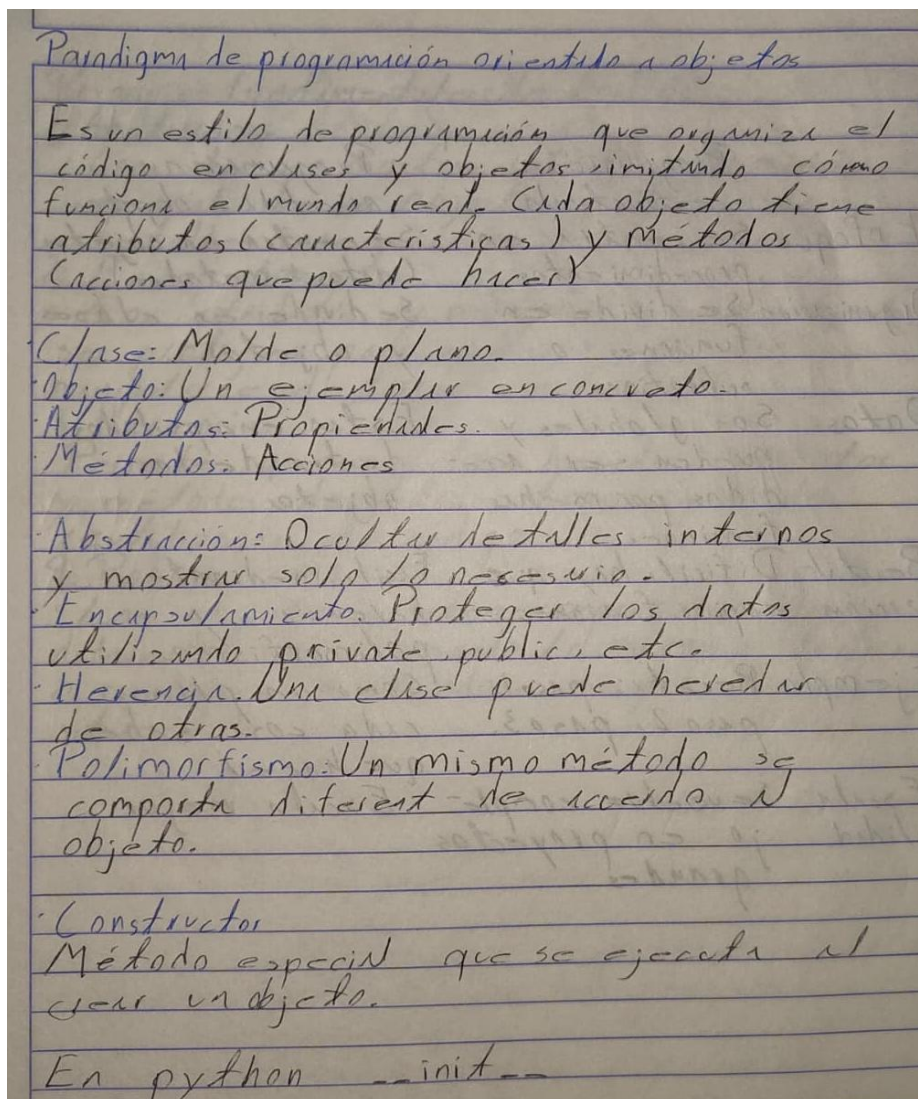 Paradigma de programación orientado a objetos
Es un estilo de programación que organiza el
código en clases y objetos, imitando cómo
funciona el mundo real. Cada objeto tiene
atributos (características) y métodos
(acciones que puede hacer)
Clase: Molde o plano.
Objeto: Un ejemplar en concreto.
Atributos: Propiedades.
Métodos: Acciones
Abstracción: Ocultar detalles internos
y mostrar solo lo necesario.
Encapsulamiento. Proteger los datos
utilizando private, public, etc.
Herencia. Una clase puede heredar
de otras.
Polimorfismo: Un mismo método se
comporta diferent de acuerdo al
objeto.
Constructor
Método especial que se ejecuta al
crear un objeto.
En python __init__